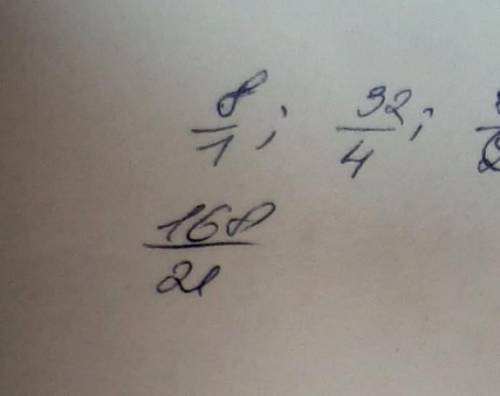 8/1; 32/4;
168/21